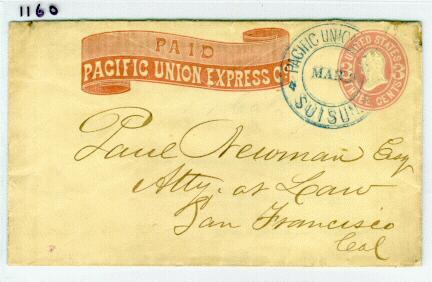 1160
PAID
PACIFIC UNION EXPRESS Co.
PACIFIC UNION
MAR
SUISUN
UNITED STATES
THREE CENTS
3
Paul Newman Esq
Atty. at Law
San Francisco
Cal